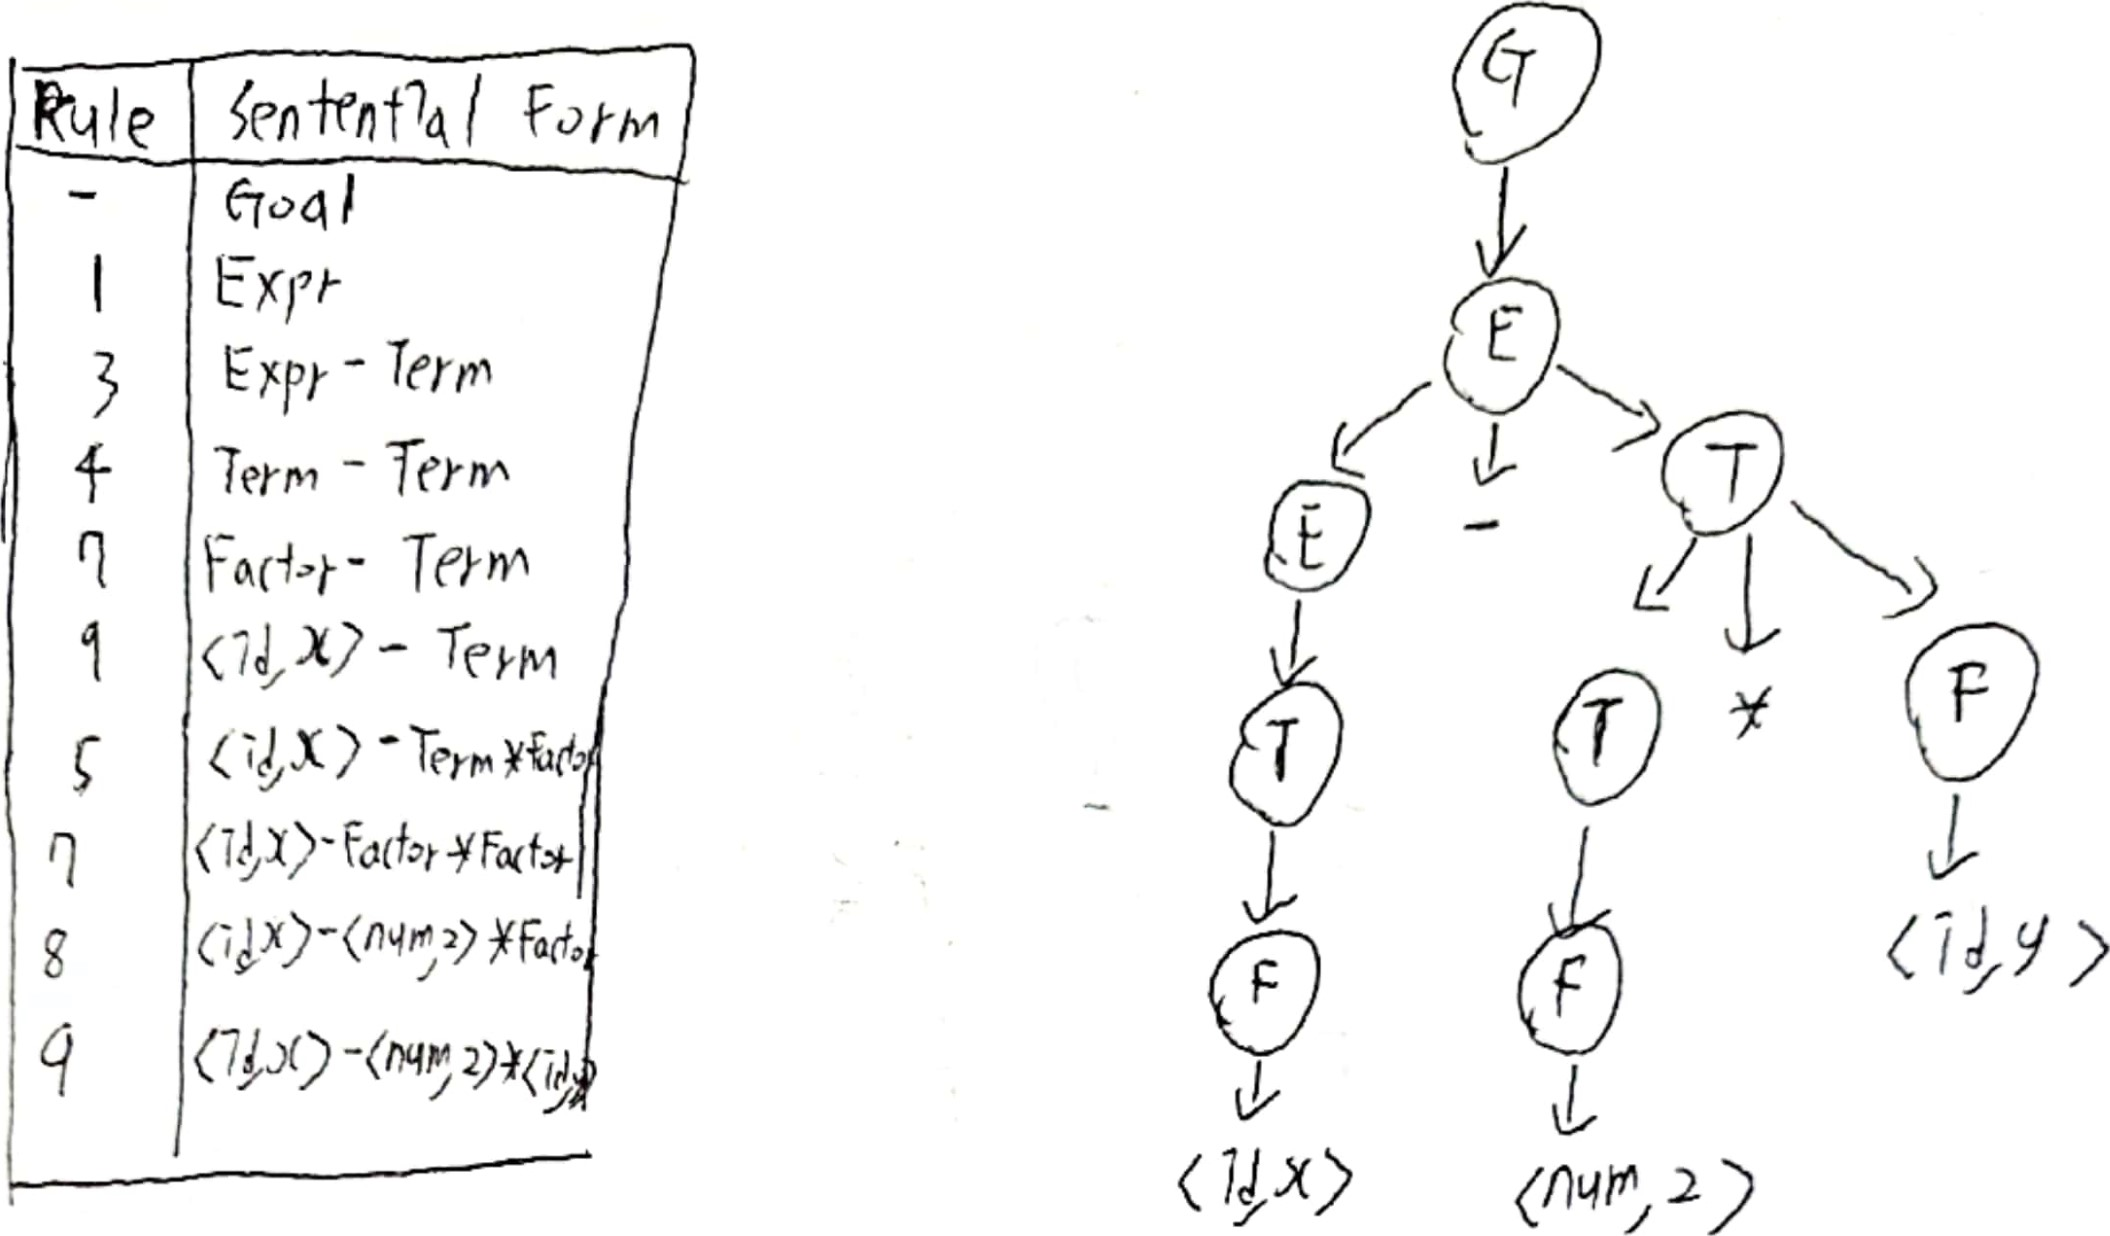 Rule Sentential Form
- Goal
1 Expr
3 Expr - Term
4 Term - Term
7 Factor - Term
9 <id,x> - Term
5 <id,x> - Term * Factor
7 <id,x> - Factor * Factor
8 <id,x> - <num,2> * Factor
9 <id,x> - <num,2> * <id,y>
G
E
E - T
T T * F
F F <id,y>
<id,x> <num,2>